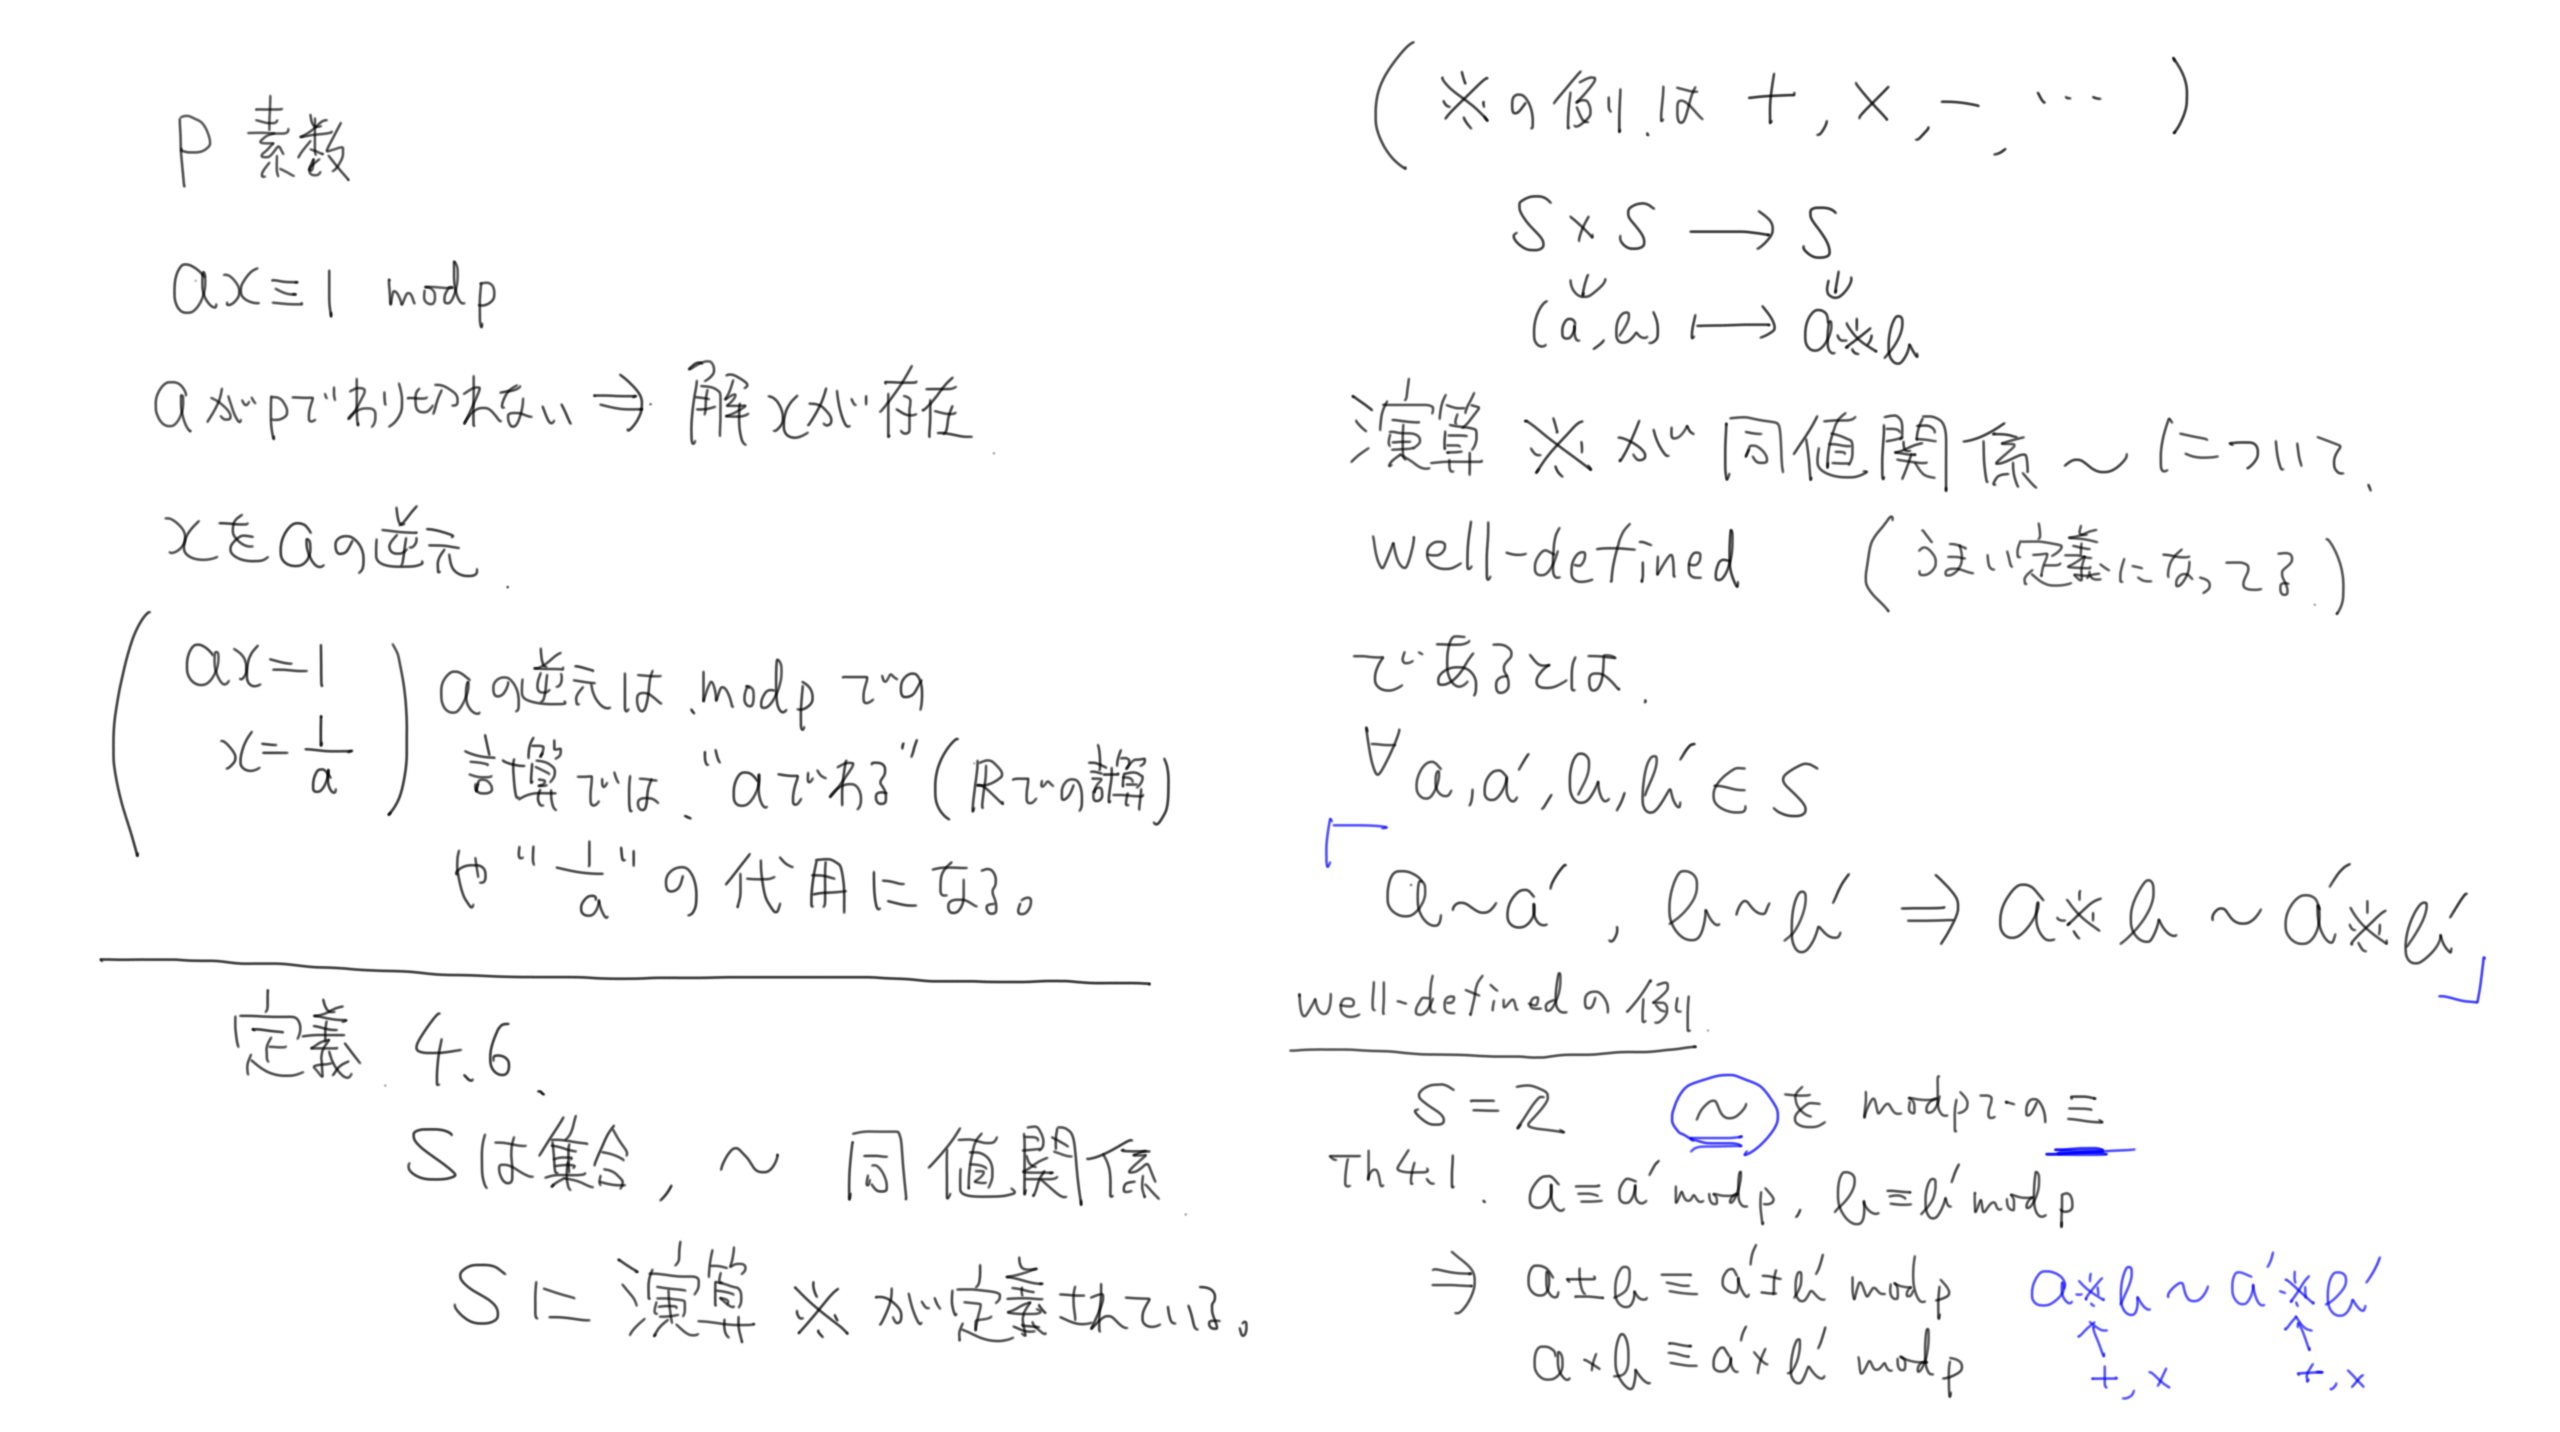 p 素数
ax≡1 mod p
aがpでわり切れない ⇒ 解xが存在
xをaの逆元.
( ax=1
x=1/a )
aの逆元は、mod p での
計算では、"aでわる" (ℝでの計算)
や "1/a" の代用になる。
定義 4.6.
Sは集合, ～ 同値関係
Sに演算 ※ が定義されている。
( ※の例は +, ×, -, … )
S × S → S
(a, b) ↦ a※b
演算 ※が同値関係～について、
well-defined (うまい定義になってる)
であるとは.
∀a, a′, b, b′ ∈ S
「a～a′, b～b′ ⇒ a※b ～ a′※b′」
well-definedの例
S = ℤ ～を mod pでの≡
Th 4.1. a≡a′ mod p, b≡b′ mod p
⇒ a±b ≡ a′±b′ mod p
a×b ≡ a′×b′ mod p
a※b ～ a′※b′
↑ ↑
+, × +, ×